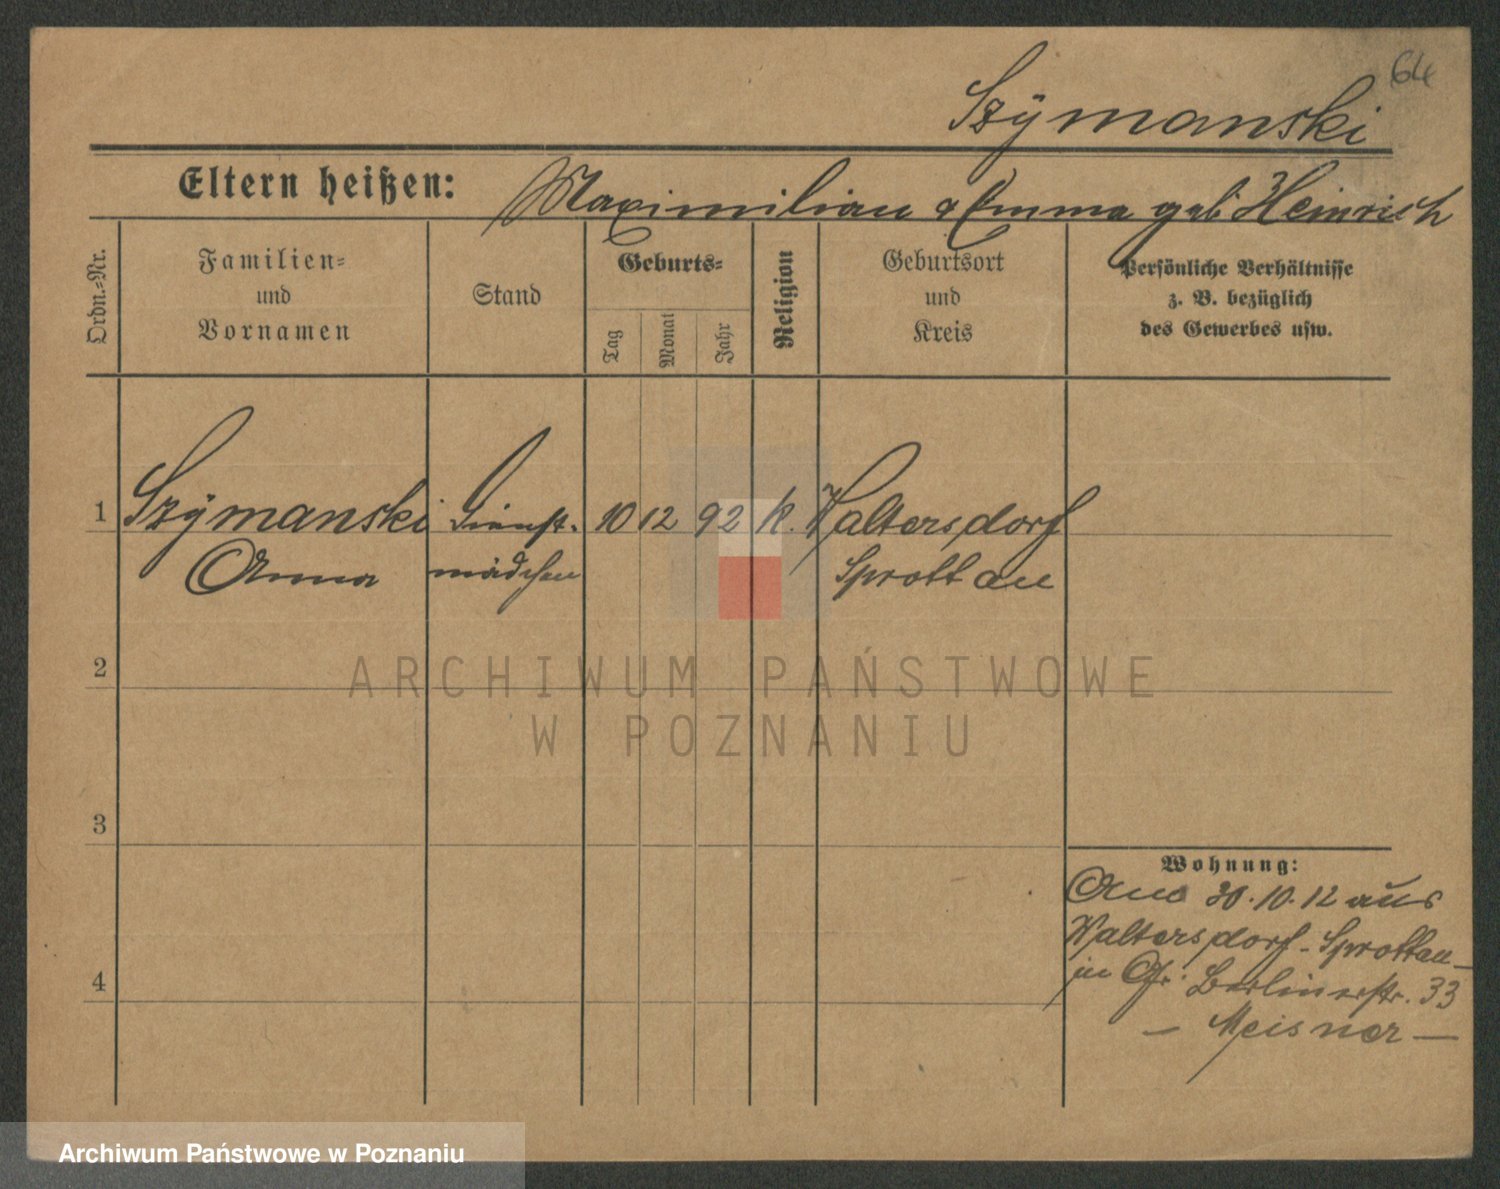 64
Szÿmanski
Eltern heißen: Maximilian & Emma geb Heinrich
Ordn.-Nr.
Familien-
und
Vornamen
Stand
Geburts-
Tag
Monat
Jahr
Religion
Geburtsort
und
Kreis
Persönliche Verhältnisse
z. B. bezüglich
des Gewerbes usw.
1 Szÿmanski Dienst- 10 12 92 k. Waltersdorf
Anna mädchen Sprottau
2
ARCHIWUM PAŃSTWOWE
W POZNANIU
3
Wohnung:
Am 30.10.12 aus
Waltersdorf-Sprottau-
in Gr. Berlinerstr. 33
- Meisner -
4
Archiwum Państwowe w Poznaniu